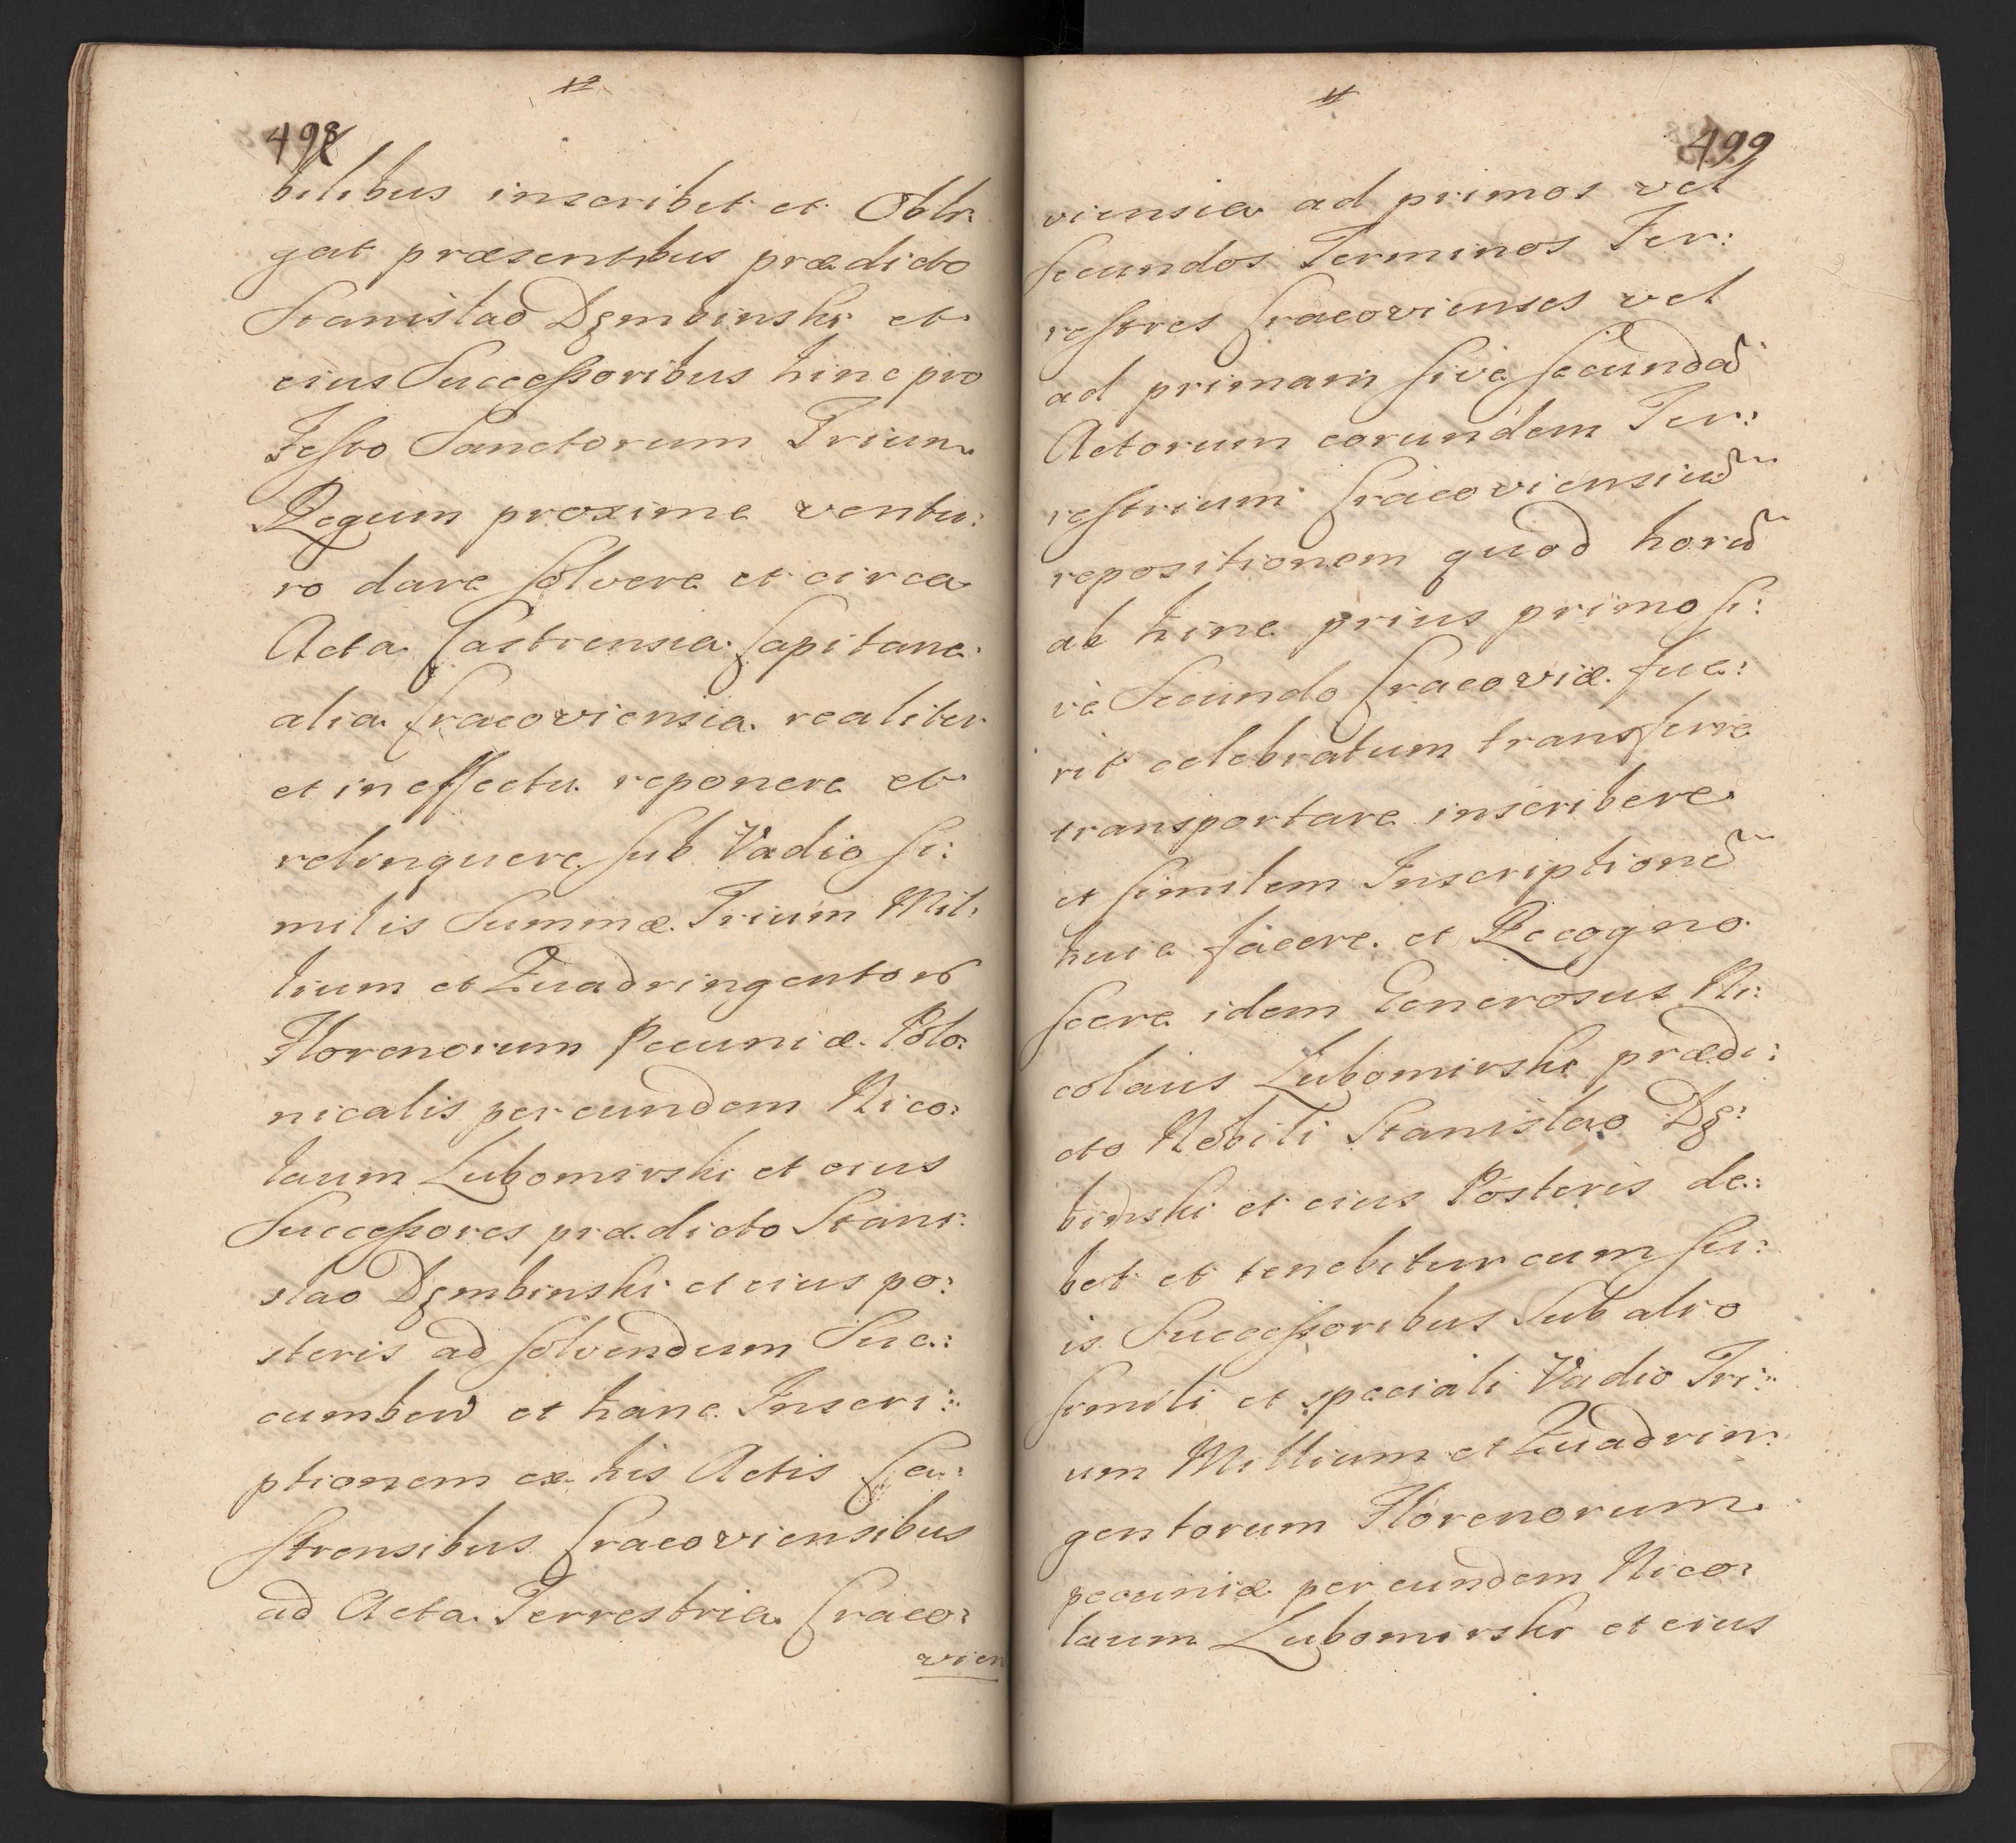 498
bilibus inscribit et Obli:
gat præsentibus prædicto
Stanislao Dęmbinski et
eius Successoribus hinc pro
Festo Sanctorum Trium
Regum proxime ventu:
ro dare solvere et circa
Acta Castrensia Capitane:
alia Cracoviensia realiter
et in effectu reponere et
relinquere sub Vadio si:
milis Summæ Trium Mil:
lium et Quadringentor
Florenorum Pecuniæ Polo:
nicalis per eundem Nico:
laum Lubomirski et eius
Successores prædicto Stani:
slao Dęmbinski et eius po:
steris ad solvendum Suc:
cumben et hanc Inscri:
ptionem ex his Actis Ca:
strensibus Cracoviensibus
ad Acta Terrestria Craco:
vien
499
viensia ad primos vel
secundos Terminos Ter:
restres Cracovienses vel
ad primam sive secundã
Actorum eorundem Ter:
restrium Cracoviensiũ
repositionem quod horũ
ab hinc prius primo si:
vè Secundo Cracoviæ fue:
rit celebratum transferre
transportare inscribere
et similem Inscriptionẽ
huic facere et Recogno
scere idem Generosus Ni:
colaus Lubomirski prædi:
cto Nobili Stanislao Dę:
binski et eius Posteris de:
bet et tenebitur cum su:
is Successoribus Sub alio
simili et speciali Vadio Tri:
um Millium et Quadrin:
gentorum Florenorum
pecuniæ per eundem Nico:
laum Lubomirski et eius